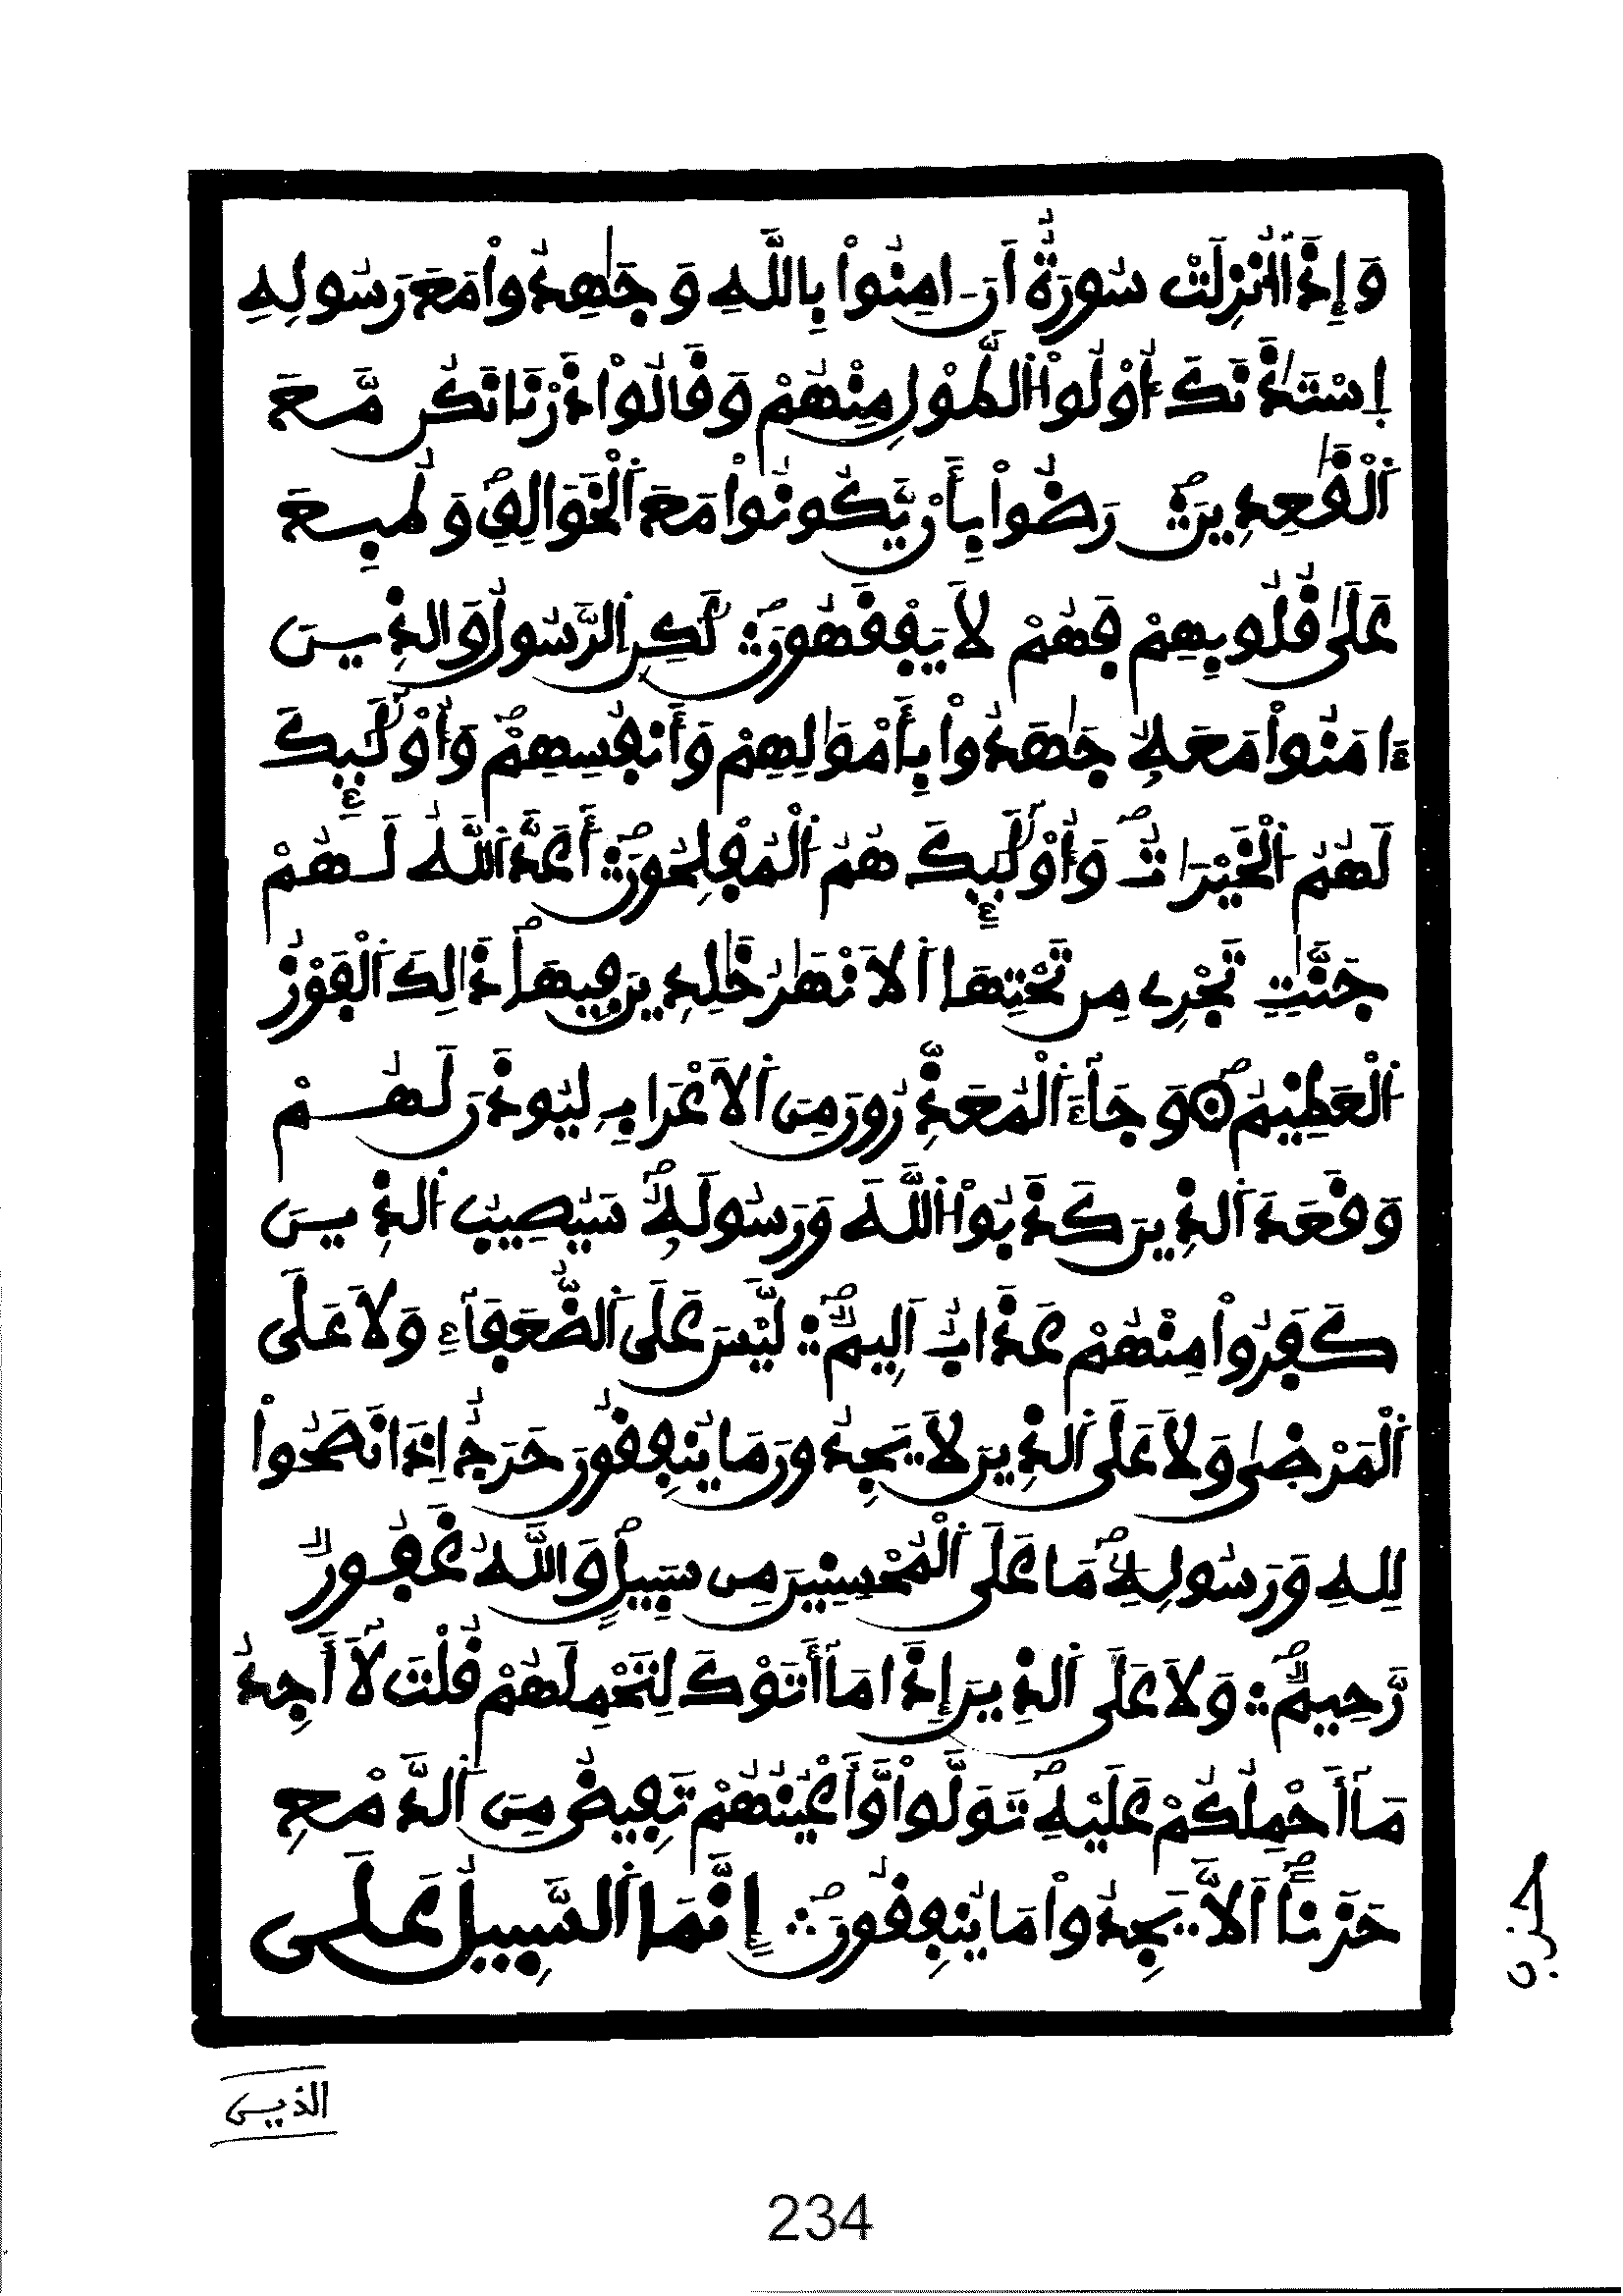 وَإِذَآ أُنزِلَتْ سُورَةٌ أَنَ ـ امِنُواْ بِاللَّهِ وَجَٰهِدُواْ مَعَ رَسُولِهِ
اِسْتَـٰٔذَنَكَ أُوْلُواْ اُ۬لطَّوْلِ مِنْهُمْ وَقَالُواْ ذَرْنَا نَكُن مَّعَ
اَ۬لْقَٰعِدِينَۖ ۞ رَضُواْ بِأَنْ يَّكُونُواْ مَعَ اَ۬لْخَوَالِفِۖ وَطُبِعَ
عَلَىٰ قُلُوبِهِمْ فَهُمْ لَا يَفْقَهُونَۖ ۞ لَٰكِنِ اِ۬لرَّسُولُ وَالذِينَ
ءَامَنُواْ مَعَهُۥ جَٰهَدُواْ بِأَمْوَٰلِهِمْ وَأَنفُسِهِمْۖ وَأُوْلَٰٓئِكَ
لَهُمُ اُ۬لْخَيْرَٰتُۖ وَأُوْلَٰٓئِكَ هُمُ اُ۬لْمُفْلِحُونَۖ ۞ أَعَدَّ اَ۬للَّهُ لَهُمْ
جَنَّٰتٍ تَجْرِے مِن تَحْتِهَا اَ۬لَانْهَٰرُ خَٰلِدِينَ فِيهَاۖ ذَٰلِكَ اَ۬لْفَوْزُ
اُ۬لْعَظِيمُۖ ۞ وَجَآءَ اَ۬لْمُعَذِّرُونَ مِنَ اَ۬لَاعْرَابِ لِيُوذَنَ لَهُمْ
وَقَعَدَ اَ۬لذِينَ كَذَبُواْ اُ۬للَّهَ وَرَسُولَهُۥۖ سَيُصِيبُ اُ۬لذِينَ
كَفَرُواْ مِنْهُمْ عَذَابٌ اَلِيمٌۖ ۞ لَّيْسَ عَلَى اَ۬لضُّعَفَآءِ وَلَا عَلَى
اَ۬لْمَرْضَىٰ وَلَا عَلَى اَ۬لذِينَ لَا يَجِدُونَ مَا يُنفِقُونَ حَرَجٌ اِذَا نَصَحُواْ
لِلهِ وَرَسُولِهِۦۖ مَا عَلَى اَ۬لْمُحْسِنِينَ مِن سَبِيلٍۖ وَاللَّهُ غَفُورٌ
رَّحِيمٌۖ ۞ وَلَا عَلَى اَ۬لذِينَ إِذَا مَآ أَتَوْكَ لِتَحْمِلَهُمْ قُلْتَ لَآ أَجِدُ
مَآ أَحْمِلُكُمْ عَلَيْهِۖ تَوَلَّواْ وَّأَعْيُنُهُمْ تَفِيضُ مِنَ اَ۬لدَّمْعِ
حَزَناًۖ اَلَّا يَجِدُواْ مَا يُنفِقُونَۖ ۞ إِنَّمَا اَ۬لسَّبِيلُ عَلَى
حزب
الذين
234